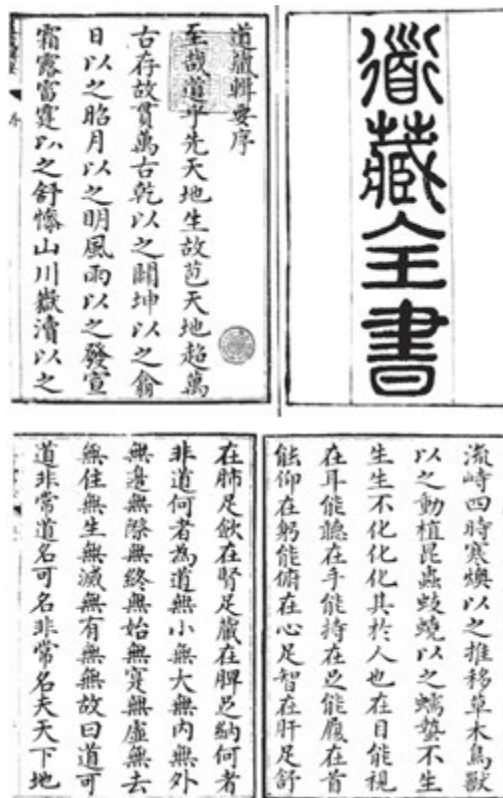 道藏全書
道藏輯要序
至哉道乎先天地生故苞天地超萬
古存故貫萬古乾以之闢坤以之翕
日以之昭月以之明風雨以之發宣
霜露雷霆以之舒慘山川嶽瀆以之
流峙四時寒燠以之推移草木鳥獸
以之動植昆蟲蚑蟯以之蠕蟄不生
生生不化化化其於人也在目能視
在耳能聽在手能持在足能履在首
能仰在躬能俯在心足智在肝足舒
在肺足飲在腎足藏在脾足納何者
非道何者為道無小無大無內無外
無邊無際無終無始無實無虛無去
無住無生無滅無有無無故曰道可
道非常道名可名非常名夫天下地